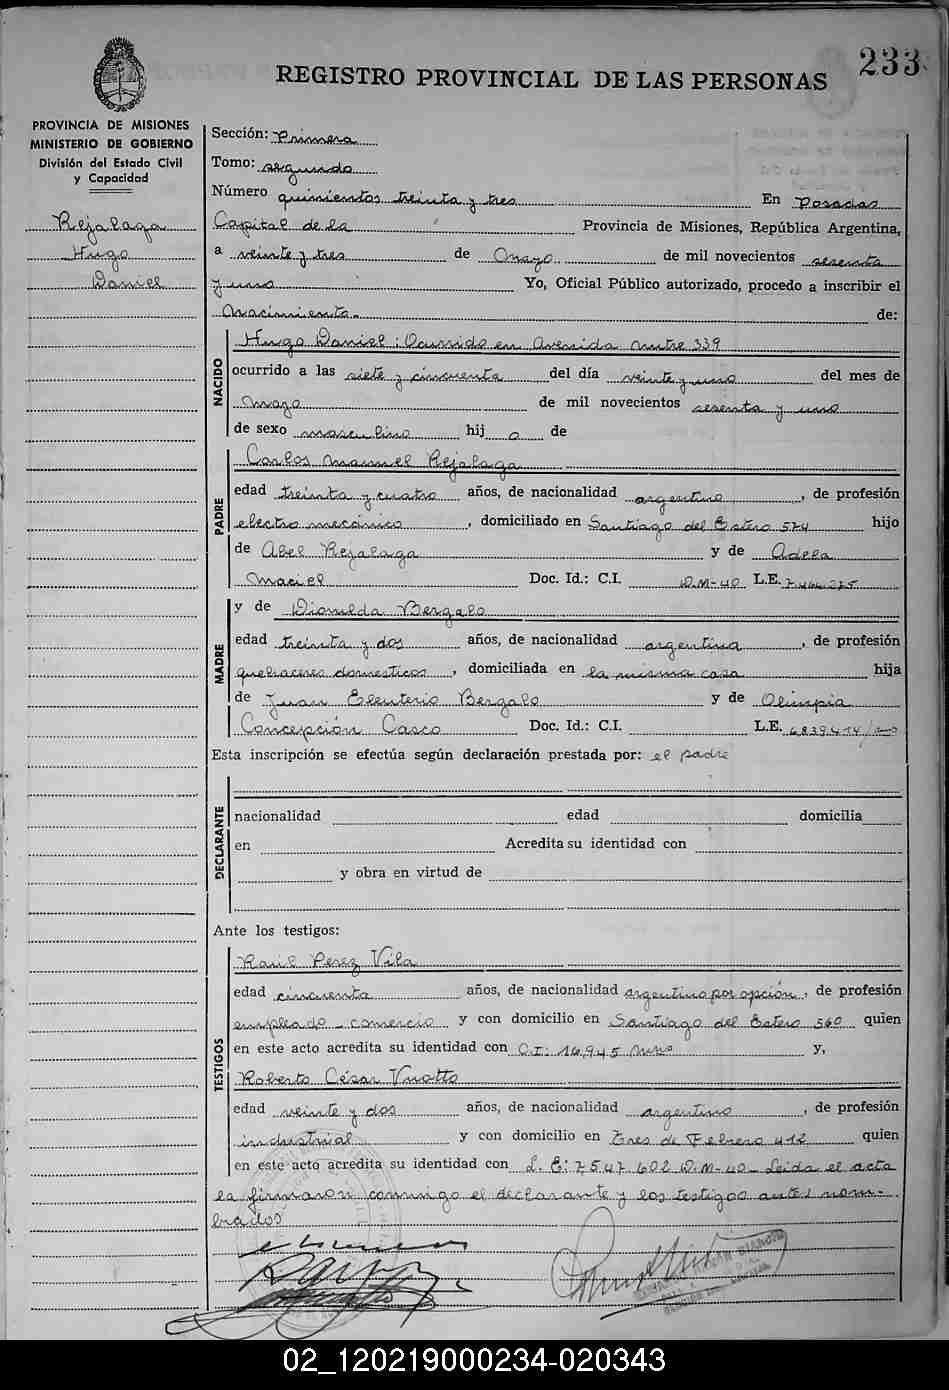 233
REGISTRO PROVINCIAL DE LAS PERSONAS
PROVINCIA DE MISIONES
MINISTERIO DE GOBIERNO
División del Estado Civil
y Capacidad
Rejalaga
Hugo
Daniel
Sección: Primera
Tomo: segundo
Número quinientos treinta y tres En Posadas
Capital de la Provincia de Misiones, República Argentina,
a veinte y tres de Mayo de mil novecientos sesenta
y uno Yo, Oficial Público autorizado, procedo a inscribir el
Nacimiento.- de:
NACIDO
Hugo Daniel: Ocurrido en Avenida Mitre 339
ocurrido a las siete y cincuenta del día veinte y uno del mes de
Mayo de mil novecientos sesenta y uno
de sexo masculino hij o de
PADRE
Carlos Manuel Rejalaga
edad treinta y cuatro años, de nacionalidad argentino, de profesión
electro mecánico, domiciliado en Santiago del Estero 574 hijo
de Abel Rejalaga y de Adela
Maciel Doc. Id.: C.I. D.M-40 L.E.
MADRE
y de Dionilda Bergalo
edad treinta y dos años, de nacionalidad argentina, de profesión
quehaceres domesticos, domiciliada en la misma casa hija
de Juan Eleuterio Bergalo y de Olimpia
Concepción Casco Doc. Id.: C.I. L.E. 6839414
Esta inscripción se efectúa según declaración prestada por: el padre
DECLARANTE
nacionalidad edad domicilia
en Acredita su identidad con
y obra en virtud de
Ante los testigos:
TESTIGOS
Raúl Perez Vila
edad cincuenta años, de nacionalidad argentino por opción, de profesión
empleado - comercio y con domicilio en Santiago del Estero 560 quien
en este acto acredita su identidad con C.I: 16,945 y,
Roberto César
edad veinte y dos años, de nacionalidad argentino, de profesión
industrial y con domicilio en Tres de Febrero 412 quien
en este acto acredita su identidad con L. E: 7547 602 D.M-40- Leida el acta
la firmaron conmigo el declarante y los testigos antes nom-
brados
02_120219000234-020343